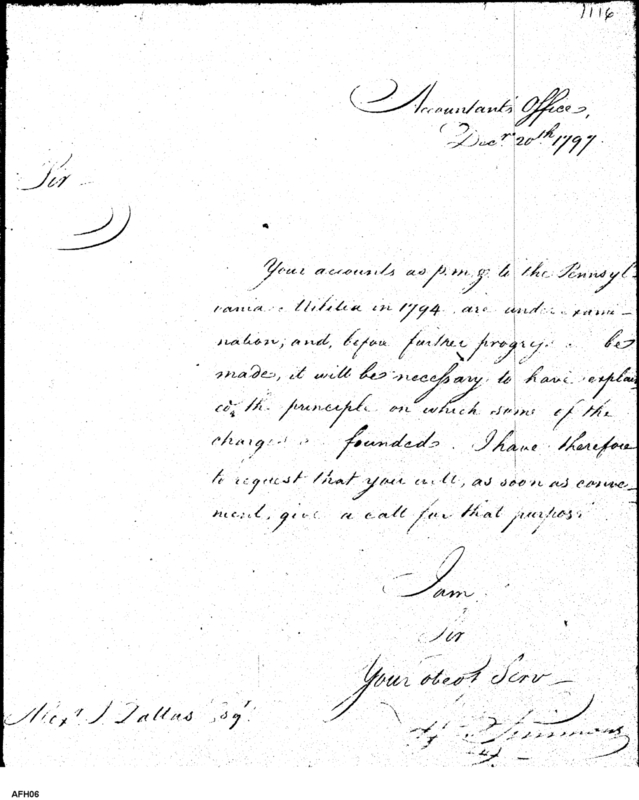 1116
Accountant's Office,
Decr. 20th 1797.
Sir
Your accounts as p.m.g. to the Pennsyl-
vania Militia in 1794 are under exami-
nation; and, before further progress be
made, it will be necessary to have explain
ed, the principle on which some of the
charges founded. I have therefore
to request that you will, as soon as conve-
nient, give a call for that purpose
I am
Sir
Your obedt Serv
Alexr J Dallas Esqr.
Simmons
AFH06